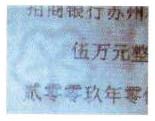 招商银行苏州
伍万元整
贰零零玖年零